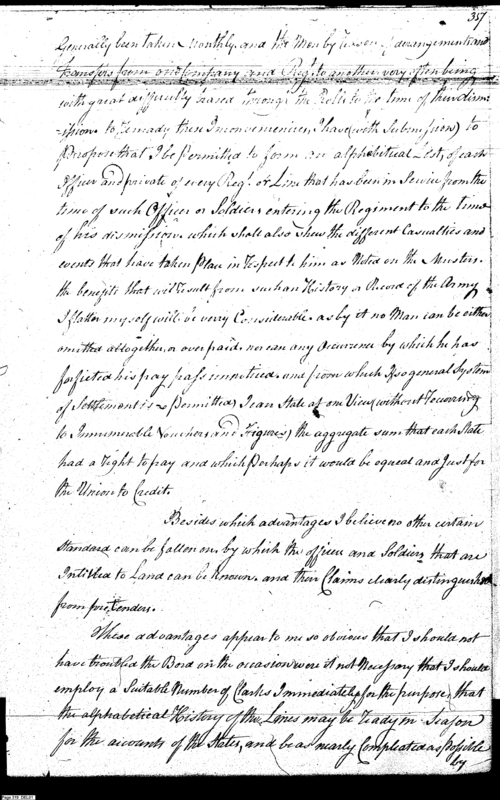 357
Generally been taken Monthly. and the Men by reason of derangements and
transfers from one Company and Regt. to another very often being
with great difficulty traced through the Rolls to the time of their dism-
ission. to remady these Inconveniences, I have (with Submission) to
Propose that I be Permitted to form an alphabetical List, of each
Officer and private of every Regt. of Line that has been in Service from the
time of such Officer or Soldiers entering the Regiment to the time
of his dismission. which shall also shew the different Casualties and
events that have taken Place in respect to him as Noted on the Musters.
the benefits that will result from such an History or Record of the Army
I flatter my self will be verry Considerable. as by it no Man can be either
omitted altogether, or over paid. nor can any Ocurrence by which he has
forfieted his pay pass unnoticed. and from which if a general System
of Settlement is Permitted, I can State at one View (without recurring
to Innumerable Vouchers and Figures) the aggregate sum that each State
had a right to pay and which Perhaps it would be equeal and Just for
the Union to Credit.
Besides which advantages I believe no other certain
standard can be fallen on. by which the officers and Soldiers that are
Intitled to Land can be known. and their Claims clearly distinguished
from pretenders.
These advantages appear to me so obvious that I should not
have troubled the Bord on the occasion were it not Necessary that I should
employ a Suitable Number of Clarks Immediately for the purpose, that
the alphabetical History of the Lines may be ready in Season
for the accounts of the States, and be as nearly Compleated as Possible
by